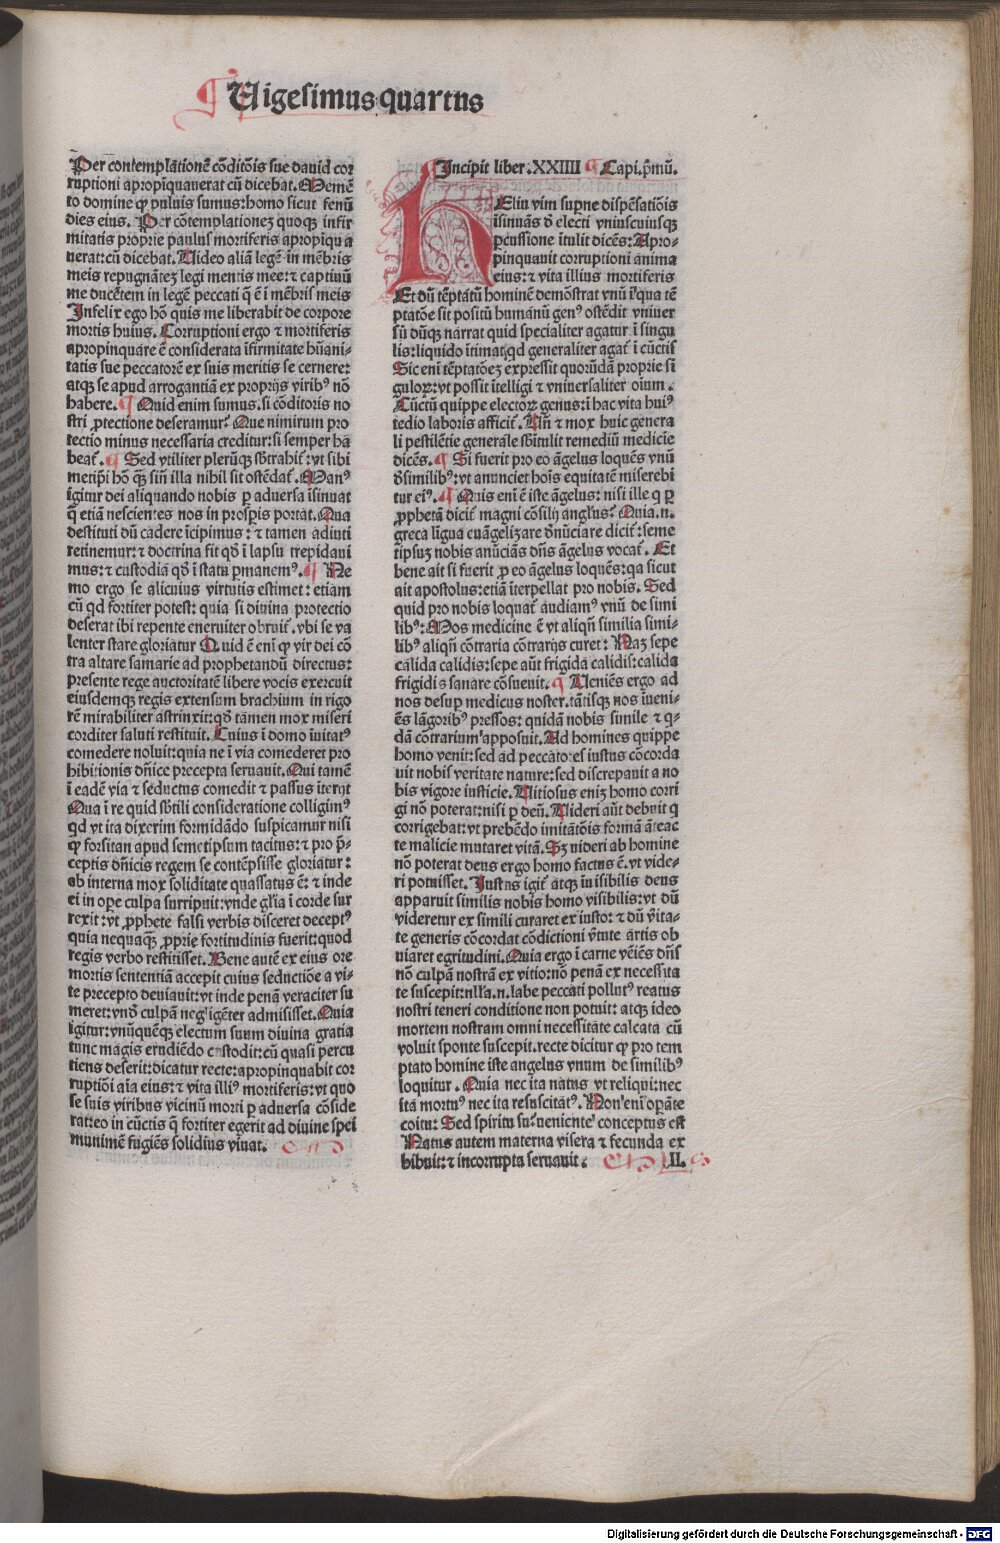 Uigesimus quartus
Per contemplationē cōditōis sue dauid cor
ruptioni apropīquauerat cū dicebat. Memē
to domine ꝙ puluis sumus: homo sicut fenū
dies eius. Per cōtemplationez quoqꝫ infir
mitatis proprie paulus mortiferis apropīqua
uerat: cū dicebat. Uideo aliā legē in mēbris
meis repugnātez legi mentis mee: ⁊ captiuū
me ducētem in legē peccati q̄ ē ī mēbris meis
Infelix ego hō quis me liberabit de corpore
mortis huius. Corruptioni ergo ⁊ mortiferis
apropinquare ē considerata īfirmitate hūani-
tatis sue peccatorē ex suis meritis se cernere:
atqꝫ se apud arrogantiā ex proprijs viribꝰ nō
habere. ¶ Quid enim sumus. si cōditoris no
stri ꝓtectione deseramur? Que nimirum pro
tectio minus necessaria creditur: si semper ha
beat̄. ¶ Sed vtiliter plerūqꝫ sbtrahit̄: vt sibi
metip̄i hō qꝫ sin̄ illa nihil sit ostēdat̄. Manꝰ
īgitur dei aliquando nobis ꝑ aduersa īsinuat
q̄ etiā nescientes nos in prosꝑis portat. Qua
destituti dū cadere īcipimus: ⁊ tamen adiuti
retinemur: ⁊ doctrina fit qð ī lapsu trepidaui
mus: ⁊ custodia qð ī statu ꝑmanemꝰ. ¶ Ne
mo ergo se alicuius virtutis estimet: etiam
cū qd fortiter potest: quia si diuina protectio
deserat ibi repente eneruiter obruit̄. vbi se va
lenter stare gloriatur Quid ē enī ꝙ vir dei cō
tra altare samarie ad prophetandū directus:
presente rege auctoritatē libere vocis exercuit
eiusdemqꝫ regis extensum brachium in rigo
rē mirabiliter astrinxit: qð tamen mox miseri
corditer saluti restituit. Cuius ī domo īuitatꝰ
comedere noluit: quia ne ī via comederet pro
hibitionis dn̄ice precepta seruauit. Qui tamē
ī eadē via ⁊ seductus comedit ⁊ passus īterijt
Qua ī re quid sbtili consideratione colligimꝰ
qd vt ita dixerim formidādo suspicamur nisi
ꝙ forsitan apud semetipsum tacitus: ⁊ pro p̄-
ceptis dn̄icis regem se contēpsisse gloriatur:
ab interna mox soliditate quassatus ē: ⁊ inde
ei in oꝑe culpa surripuit: vnde gl̄ia ī corde sur
rexit: vt ꝓphete falsi verbis disceret deceptꝰ
quia nequaqꝫ ꝓprie fortitudinis fuerit: quod
regis verbo restitisset. Bene autē ex eius ore
mortis sententiā accepit cuius seductiōe a vi-
te precepto deuiauit: vt inde penā veraciter su
meret: vnð culpā negligēter admisisset. Quia
igitur: vnūquēqꝫ electum suum diuina gratia
tunc magis erudiēdo custodit: cū quasi percu
tiens deserit: dicatur recte: apropinquabit cor
ruptiōi aīa eius: ⁊ vita illiꝰ mortiferis: vt quo
se suis viribus vicinū morti ꝑ aduersa cōside
rat: eo in cūctis q̄ fortiter egerit ad diuine spei
munimē fugiēs solidius viuat.
Incipit liber. XXIIII ¶ Capi. p̄mū.
hEliu vim suꝑne dispēsatiōis
īsinuās ð electi vniuscuiusqꝫ
ꝑcussione ītulit dicēs: Apro-
pinquauit corruptioni anima
eius: ⁊ vita illius mortiferis
Et dū tēptatū hominē demōstrat vnū ī qua tē
ptatōe sit positū humanū genꝰ ostēdit vniuer
sū dūqꝫ narrat quid specialiter agatur ī singu
lis: liquido ītimat qd generaliter agat̄ ī cūctis
Sic enī tēptatōez expressit quorūdā proprie si
guloꝝ: vt possit ītelligi ⁊ vniuersaliter oīum.
Cūctū quippe electoꝝ genus: ī hac vita huiꝰ
tedio laboris afficit̄. Uñ ⁊ mox huic genera
li pestilētie generale sbītulit remediū medicīe
dicēs. ¶ Si fuerit pro eo āgelus loquēs vnū
ð similibꝰ: vt annunciet hoīs equitatē miserebi
tur eiꝰ. ¶ Quis enī ē iste āgelus: nisi ille q ꝑ
ꝓphetā dicit̄ magni cōsilij angl̄us? Quia .n.
greca lingua euāgelizare ðnūciare dicit̄: seme
tipsuꝫ nobis anūciās dn̄s āgelus vocat̄. Et
bene ait si fuerit ꝓ eo āgelus loquēs: qa sicut
ait apostolus: etiā īterpellat pro nobis. Sed
quid pro nobis loquat̄ audiamꝰ vnū de simi
libꝰ: Mos medicine ē vt aliqñ similia simi-
libꝰ aliqñ cōtraria cōtrarijs curet: Naꝫ sepe
calida calidis: sepe aūt frigida calidis: calida
frigidis sanare cōsueuit. ¶ Ueniēs ergo ad
nos desuꝑ medicus noster. tātisqꝫ nos īueni-
ēs lāgoribꝰ pressos: quidā nobis simile ⁊ q-
dā cōtrarium apposuit. Ad homines quippe
homo venit: sed ad peccatores iustus cōcorda
uit nobis veritate nature: sed discrepauit a no
bis vigore iusticie. Uitiosus eniꝫ homo corri
gi nō poterat: nisi ꝑ deū. Uideri aūt debuit q
corrigebat: vt prebēdo imitatōis formā āteac
te malicie mutaret vitā. Sꝫ videri ab homine
nō poterat deus ergo homo factus ē. vt vide-
ri potuisset. Iustus igit̄ atqꝫ īuisibilis deus
apparuit similis nobis homo visibilis: vt dū
videretur ex simili curaret ex iusto: ⁊ dū v̄ita-
te generis cōcordat cōdictioni v̄tute artis ob
uiaret egritudini. Quia ergo ī carne vēiēs dn̄s
nō culpā nostrā ex vitio: nō penā ex necessita
te suscepit: nll̄a .n. labe peccati pollutꝰ reatus
nostri teneri conditione non potuit: atqꝫ ideo
mortem nostram omni necessitate calcata cū
voluit sponte suscepit. recte dicitur ꝙ pro tem
ptato homine iste angelus vnum de similibꝰ
loquitur. Quia nec ita natus vt reliqui: nec
ita mortuꝰ nec ita resuscitatꝰ. Non enī opāte
coitu: Sed spiritu suꝑueniente conceptus est
Natus autem materna viscera ⁊ fecunda ex
hibuit: ⁊ incorrupta seruauit. II.
Digitalisierung gefördert durch die Deutsche Forschungsgemeinschaft - DFG